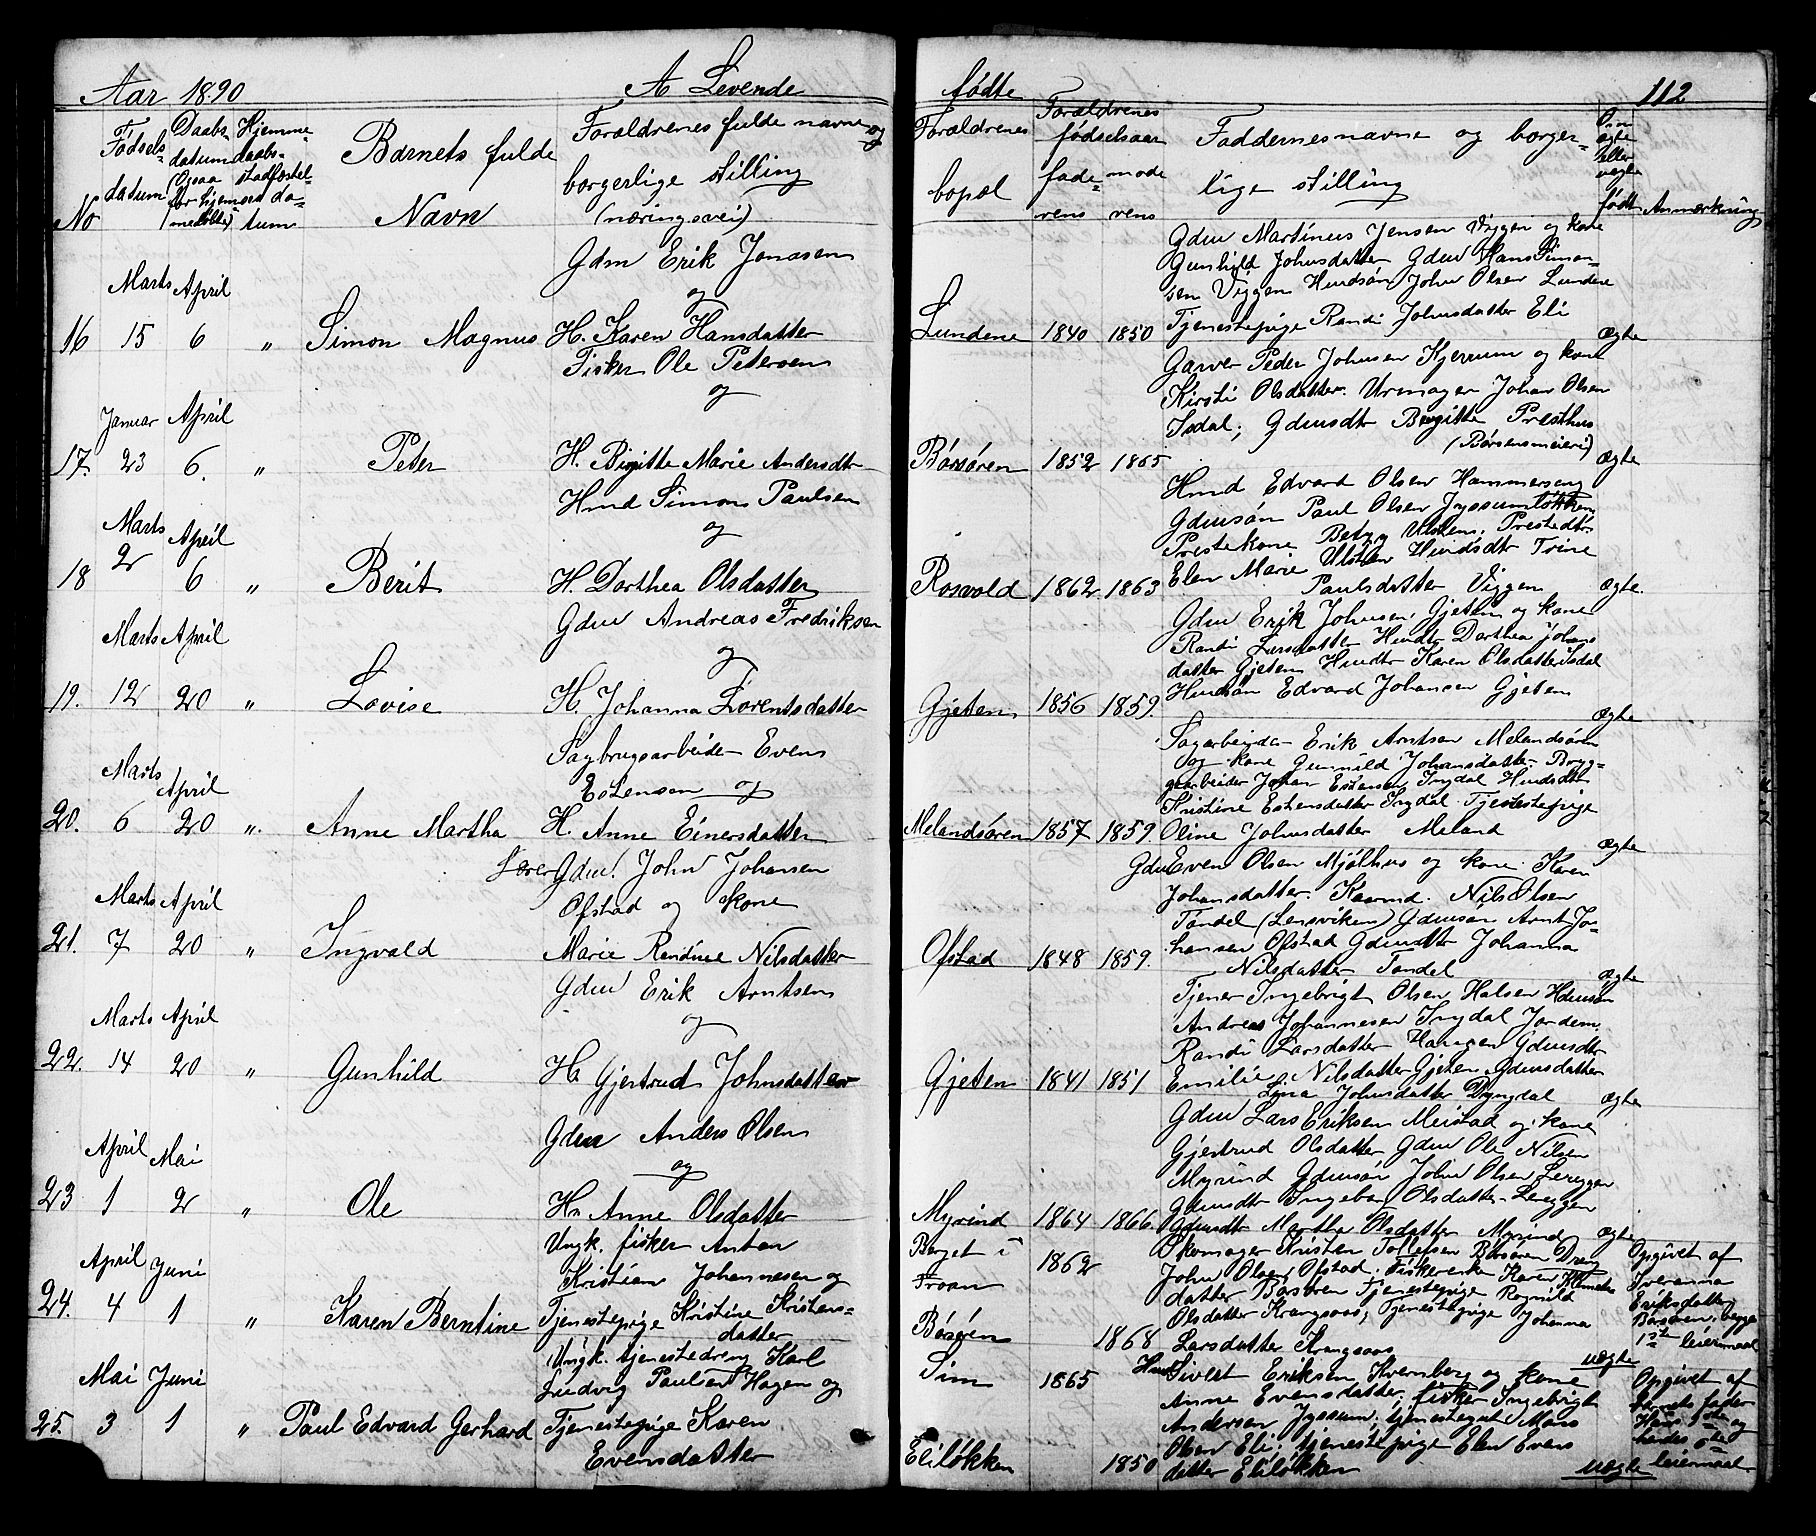 Aar 1890
A Levende
fødte
112
No
Fødsels-
datum
Daabs-
datum
(Ogsaa
for hjem-
medøbte)
Hjemme
daabs-
stadfæstel-
da-
tum
Barnets fulde
Navn
Forældrenes fulde navne og
borgerlige stilling
(næringsvei)
Forældrenes
bopæl
Forældrenes
fødselsaar
fade-
rens
mode
rens
Faddernes navne og borger-
lige stilling
Om
ægte
eller
uægte
født
Anmærkning
Marts April
16 15 6 "
Simon Magnus
Gdm Erik Jonasen
og
H. Karen Hansdatter
Lundene 1840 1850
Gdm Martinus Jensen Viggen og kone
Gunhild Johnsdatter Gdm Hans Simon-
sen Viggen Hmdsøn John Olsen Lundene
Tjenestepige Randi Johnsdatter Eli
ægte
Januar April
17. 23 6. "
Peter
Fisker Ole Petersen
og
H. Birgitte Marie Andersdtr
Børsøren 1852 1865
Garver Peder Johnsen Kjerrum og kone
Kirsti Olsdatter. Urmager Johan Olsen
Isdal; Gdmsdtr Birgitte Presthus
(Børsensmeieri)
ægte
Marts April
18 2 6 "
Berit
Hmd Simon Paulsen
og
H. Dorthea Olsdatter
Rosvold 1862 1863
Hmd Edvard Olsen Hammerseng
Gdmsøn Paul Olsen Jyssumløkken
Prestekone Betzy Ulsten, Prestedtr.
Elen Marie Ulsten Hmdsdtr Trine
Paulsdatter Viggen
ægte.
Marts April
19. 12 20 "
Lovise
Gdm Andreas Fredriksen
og
H. Johanna Lorentsdatter
Gjeten 1856 1859.
Gdm Erik Johnsen Gjeten og kone
Randi Larsdatter Hmdtr Dorthea Johans
datter Gjeten Hmdtr Karen Olsdatter Isdal
Hmdsøn Edvard Johansen Gjeten
ægte
Marts April
20. 6 20 ".
Anne Martha
Sagbrugsarbeider Even
Estensen og
H. Anne Einersdatter
Melandsøren 1857 1859.
Sagarbeider Erik Arntsen Melandsøren
og kone Gunnild Johansdatter Bryg-
gearbeider Johan Estensen Ingdal Hmdsdtr
Kristine Estensdatter Ingdal Tjenestepige
Oline Johnsdatter Meland
ægte
Marts April
21. 7 20 "
Ingvald
Lærer Gdm. John Johansen
Ofstad og kone
Marie Rendine Nilsdatter
Ofstad 1848 1859.
Gdm Even Olsen Mjølhus og kone Karen
Johansdatter. Kaarmd. Nils Olsen
Tøndel (Lensviken) Gdmsøn Arnt Jo-
hansen Ofstad Gdmdtr Johanna
Nilsdatter Tøndel
ægte
Marts April
22. 14 20 "
Gunhild
Gdm Erik Arntsen
og
H. Gjertrud Johnsdatter
Gjeten 1841 1851
Tjener Ingebrigt Olsen Halsen Hdmsøn
Andreas Johannesen Ingdal Jordem.
Randi Larsdatter Haugen Gdmsdtr
Emilie Nilsdatter Gjeten, Gdmsdatter
Lina Johnsdatter Dyngdal
ægte
April Mai
23 1 2 "
Ole
Gdm Anders Olsen
og
H. Anne Olsdatter
Myrind 1864 1866.
Gdm Lars Eriksen Meistad og kone
Gjertrud Olsdatter Gdm Ole Nilsen
Myrind Gdmsøn John Olsen Lereggen
Gdmsdtr Ingebor Olsdatter Lereggen
Gdmsdtr Martha Olsdatter Myrind
ægte
April Juni
24. 4 1 "
Karen Berntine
Ungk. fisker Anton
Kristian Johannesen og
Tjenestepige Kristine Kristens-
datter
Berget i
Froan
Børsøren
1862
1868
Skomager Kristen Tollefsen Børsøren Dreng
John Olsen Ofstad. Fiskerenke Karen
datter Børsøren Tjenestepige Ragnild
Olsdatter Krangsaas; Tjenestepige Johanna
Larsdatter Krangsaas
uægte
Opgivet af
Sveranna
Eriksdatter
Børsøren; begge
1ste leiermaal
Mai Juni
25. 3 1 "
Paul Edvard Gerhard
Ungk. tjenestedreng Karl
Ludvig Paulsen Hagen og
Tjenestepige Karen
Evensdatter
Sim
Eliløkken
1865
1850
Hmd Sivert Eriksen Kvernberg og kone
Anne Evensdatter, fisker Ingebrigt
Andersen Jyssum; tjenestegut Mass
Olsen Eli; tjenestepige Elen Evens
datter Eliløkken
uægte
Opgivet af
barnets fader
Hans 1ste og
hendes
leiermaal.